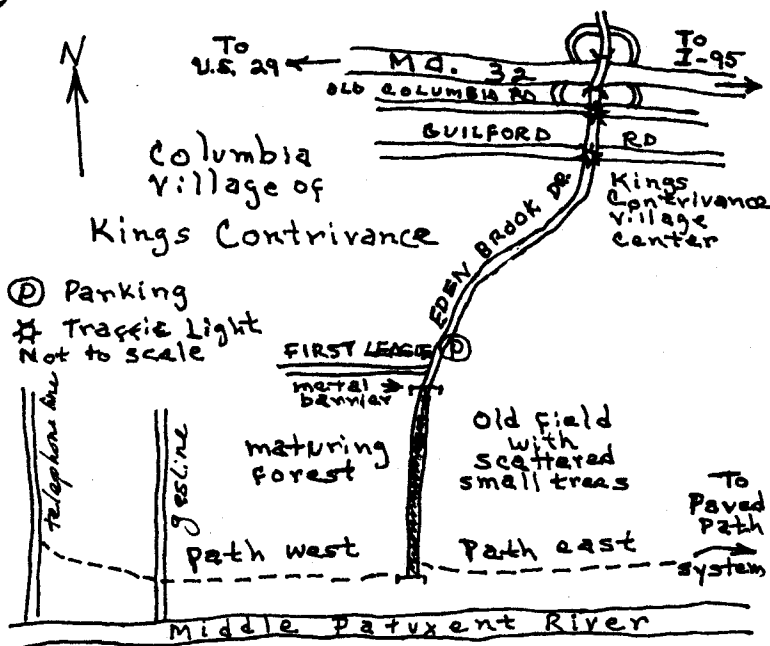 N
To
U.S. 29
Md. 32
To
I-95
OLD COLUMBIA RD
GUILFORD RD
Columbia
Village of
Kings Contrivance
Kings
Contrivance
Village
Center
EDEN BROOK DR.
P Parking
Traffic Light
Not to scale
FIRST LEAGUE
P
metal
barrier
telephone line
gasline
maturing
forest
Old field
with
scattered
small trees
To
Paved
Path
system
path west
Path east
Middle Patuxent River